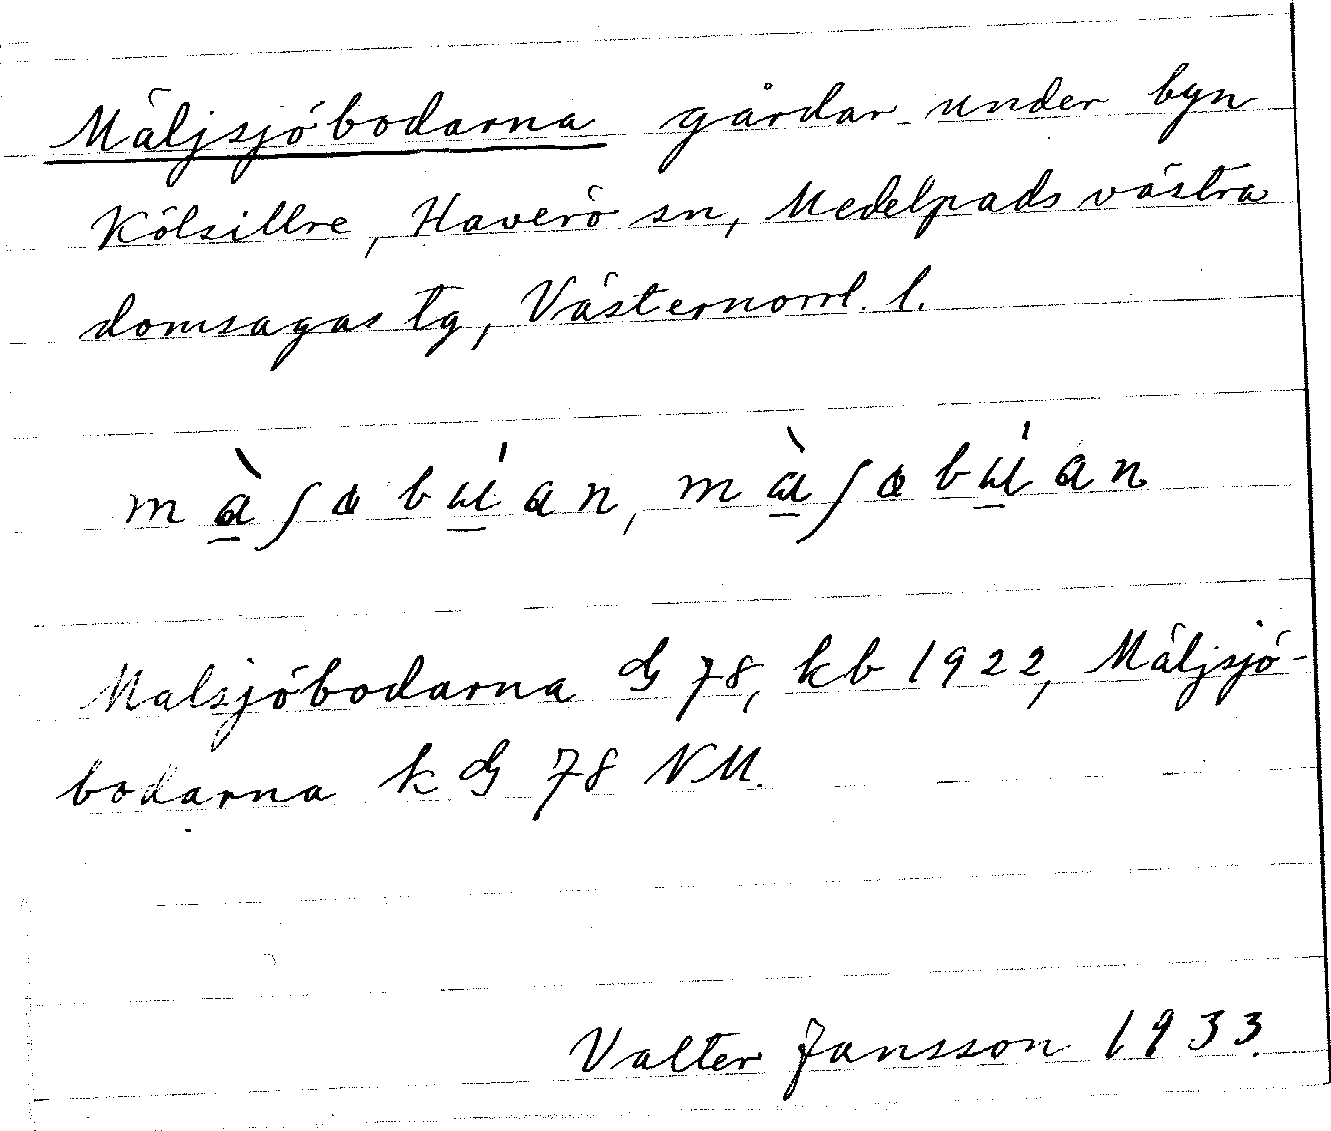 Mäljsjöbodarna gårdar under byn
Kölsillre, Haverö sn, Medelpads västra
domsagas tg, Västernorrl. l.
màʃabú̱an, màʃabú̱an
Malsjöbodarna G 78, kb 1922, Mäljsjö-
bodarna k G 78 NM.
Valter Jansson 1933.